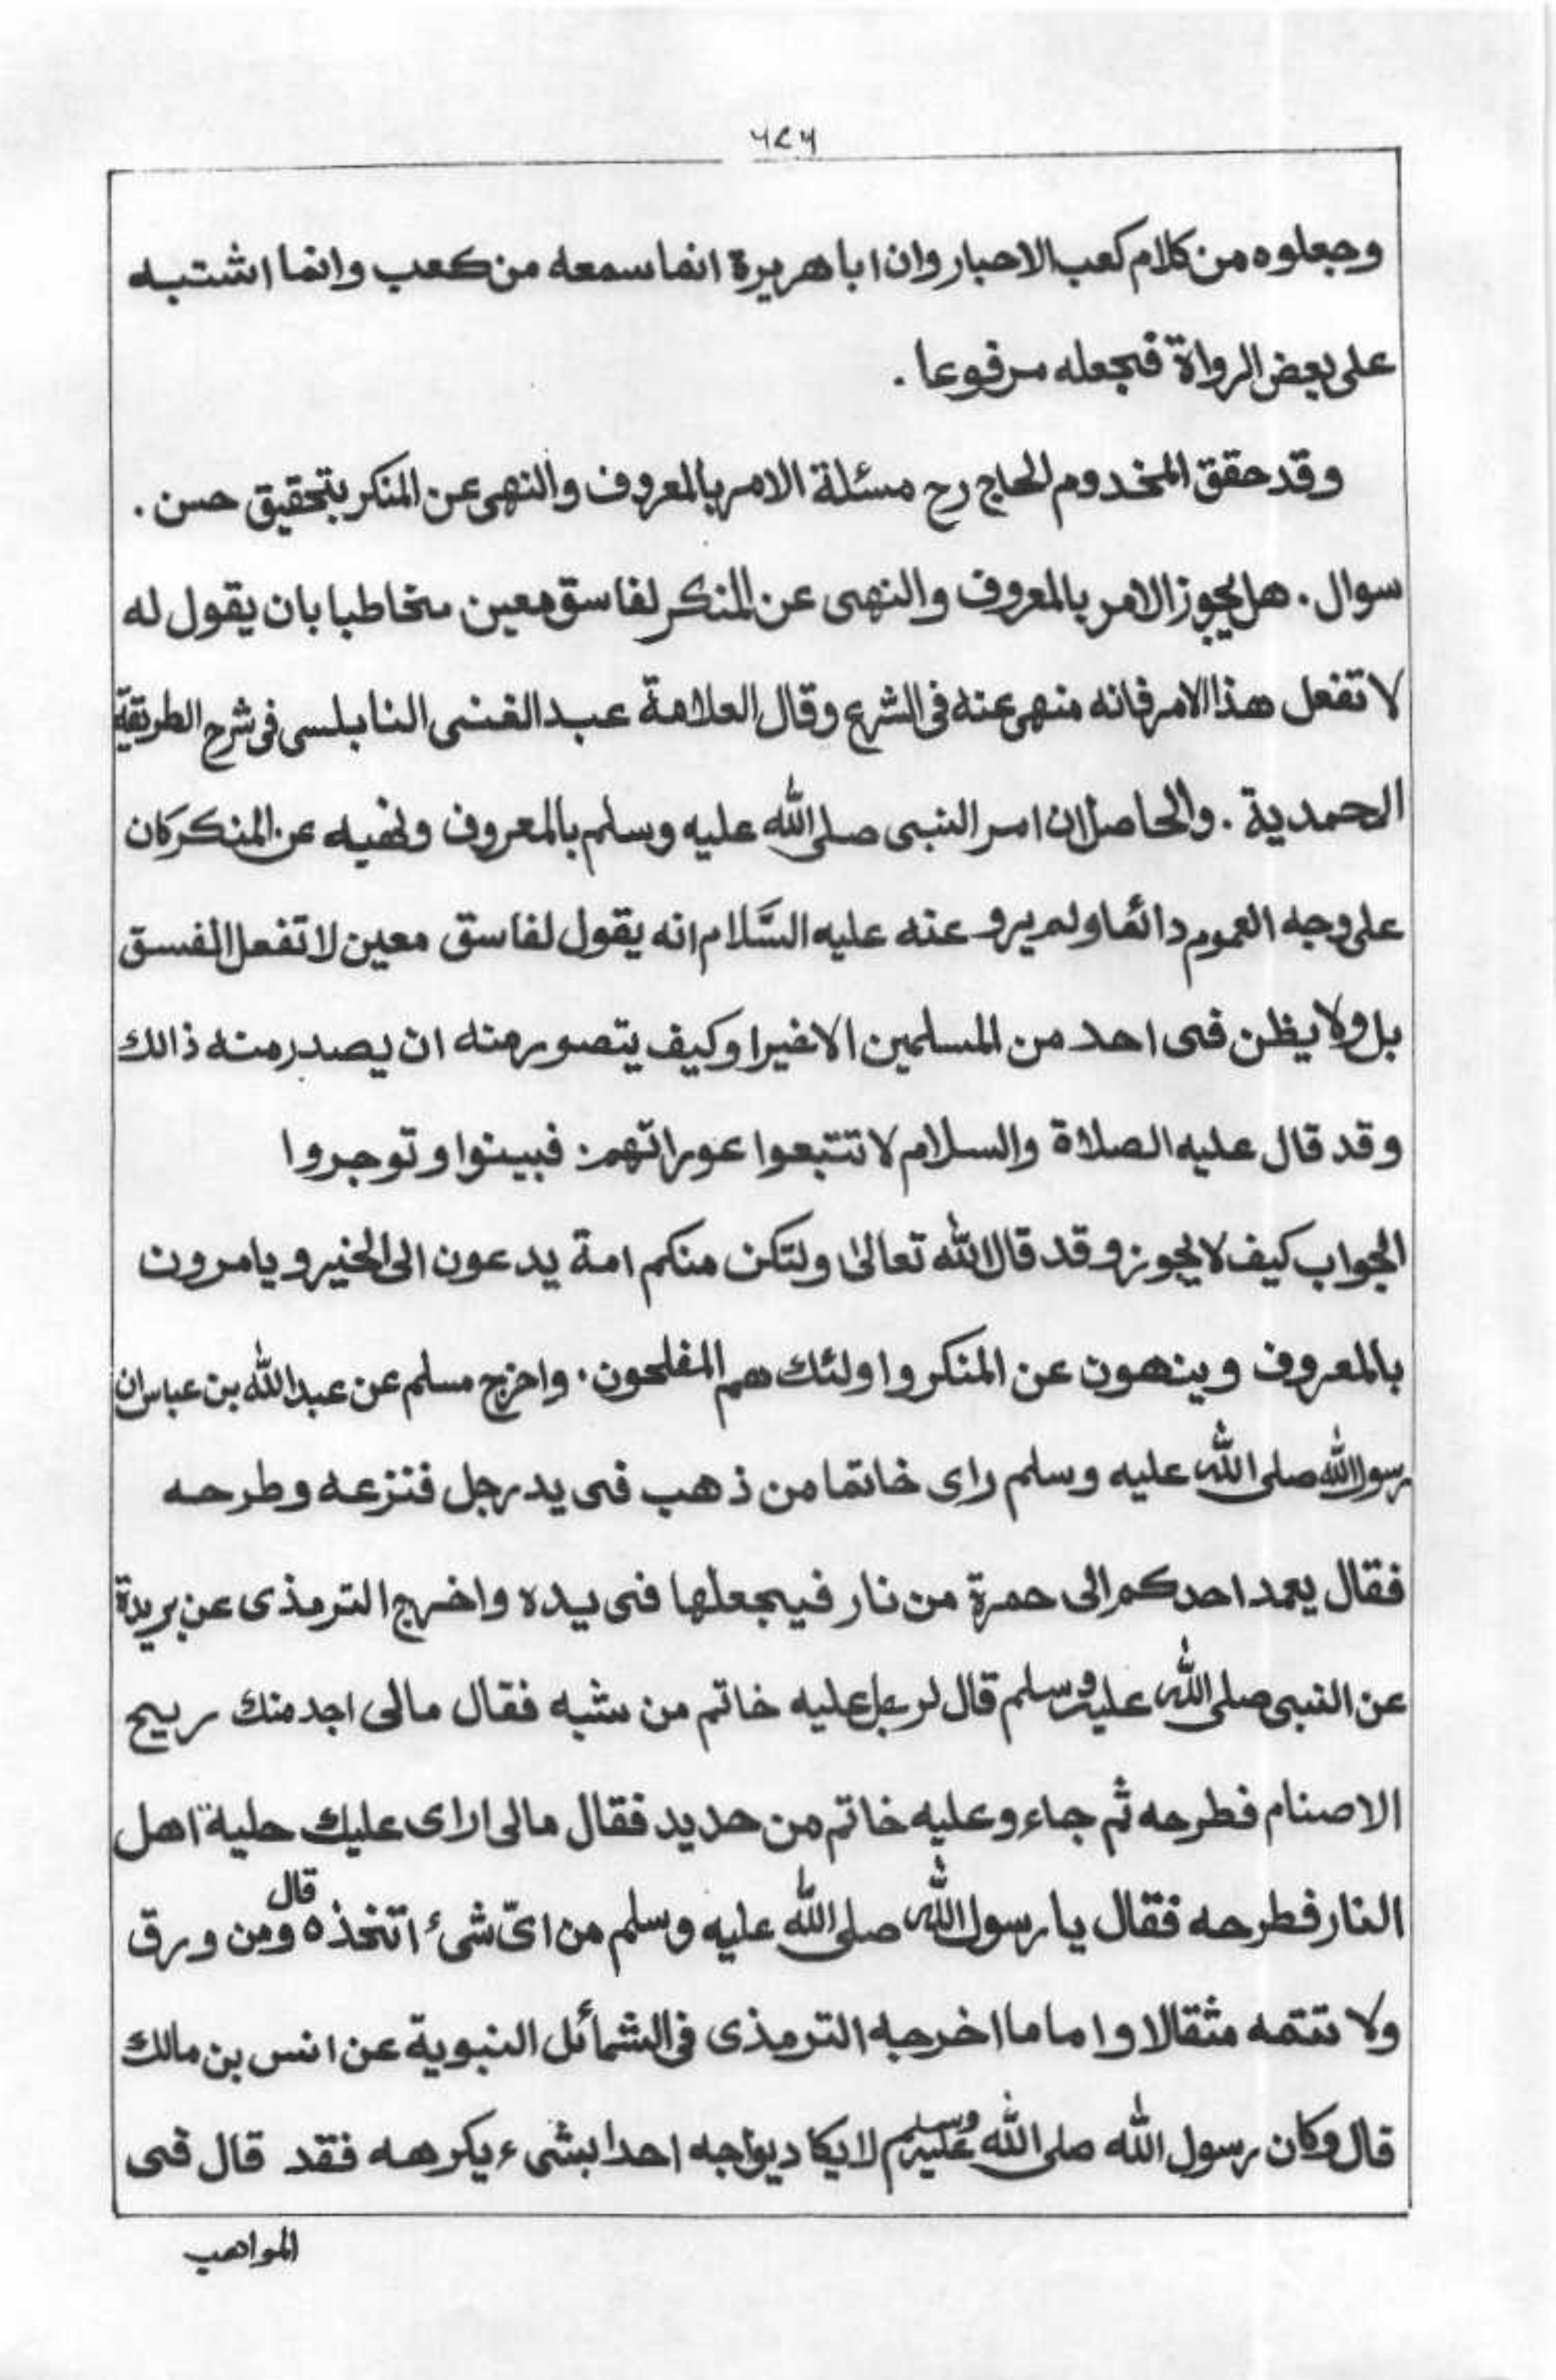 ٦٧٦
وجعلوه من كلام كعب الاحبار وان ابا هريرة انما سمعه من كعب وانما اشتبه
على بعض الرواة فجعله مرفوعا .
وقد حقق المخدوم الحاج رح مسئلة الامر بالمعروف والنهى عن المنكر بتحقيق حسن .
سوال . هل يجوز الامر بالمعروف والنهى عن المنكر لفاسق معين مخاطبا بان يقول له
لا تفعل هذا الامر فانه منهى عنه فى الشرع وقال العلامة عبد الغنى النابلسى فى شرح الطريقة
المحمدية . والحاصل ان امر النبى صلى الله عليه وسلم بالمعروف ونهيه عن المنكر كان
على وجه العموم دائما ولم يرو عنه عليه السَّلام انه يقول لفاسق معين لا تفعل الفسق
بل ولا يظن فى احد من المسلمين الا خيرا وكيف يتصور منه ان يصدر منه ذالك
وقد قال عليه الصلاة والسلام لا تتبعوا عوراتهم . فبينوا و توجروا
الجواب كيف لا يجوز وقد قال الله تعالىٰ ولتكن منكم امة يدعون الى الخير و يامرون
بالمعروف وينهون عن المنكر واولئك هم المفلحون . واخرج مسلم عن عبد الله بن عباس ان
رسول الله صلى الله عليه وسلم راى خاتما من ذهب فى يد رجل فنزعه وطرحه
فقال يعمد احدكم الى حمرة من نار فيجعلها فى يده واخرج الترمذى عن بريدة
عن النبى صلى الله عليه وسلم قال لرجل عليه خاتم من شبه فقال مالى اجد منك ريح
الاصنام فطرحه ثم جاء وعليه خاتم من حديد فقال مالى اراى عليك حلية اهل
النار فطرحه فقال يا رسول الله صلى الله عليه وسلم من اىّ شىء اتخذه قال ومن ورق
ولا تتمه مثقالا واما ما اخرجه الترمذى فى الشمائل النبوية عن انس بن مالك
قال وكان رسول الله صلى الله عليه وسلم لا يكاد يواجه احدا بشىء يكرهه فقد قال فى
المواهب